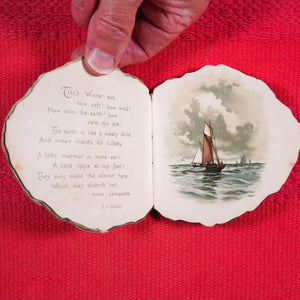 THIS Winter eve
how soft! how mild!
How calm the earth! how
calm the sea!
The earth is like a weary child,
And ocean chants its lullaby.
A little murmur in mine ear!
A little ripple at my feet!
They only make the silence here,
Which they disturb not,
more complete.